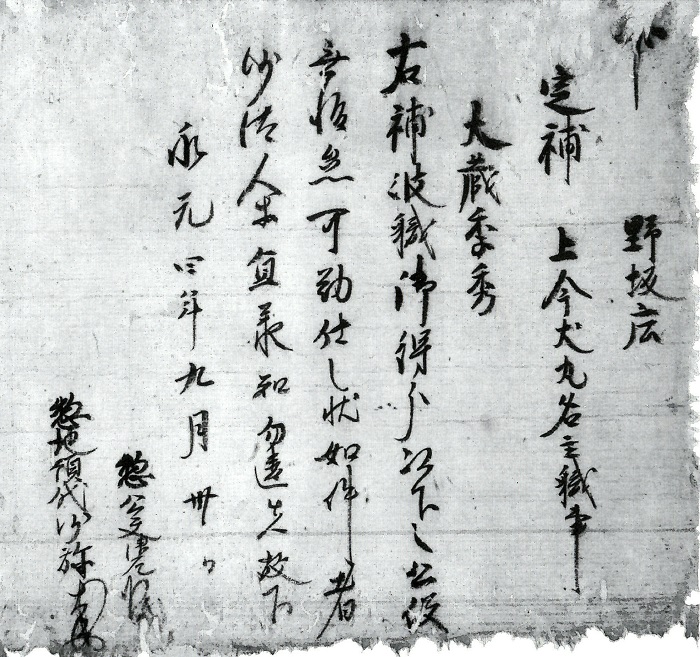 野坂庄
定補 上今犬丸名主職事
大蔵季秀
右補彼職御得分以下之公役
無懈怠可勤仕之状如件者
沙汰人等宜承知勿違失故下
承元四年九月卅日
惣公文僧
惣地頭代沙弥